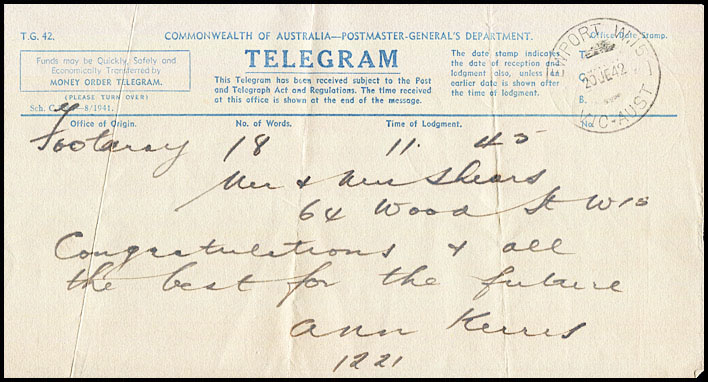 T.G. 42.
COMMONWEALTH OF AUSTRALIA—POSTMASTER-GENERAL'S DEPARTMENT.
Office Date Stamp.
Funds may be Quickly, Safely and
Economically Transferred by
MONEY ORDER TELEGRAM.
(PLEASE TURN OVER)
Sch. C —8/1941.
TELEGRAM
This Telegram has been received subject to the Post
and Telegraph Act and Regulations. The time received
at this office is shown at the end of the message.
The date stamp indicates
the date of reception and
lodgment also, unless an
earlier date is shown after
the time of lodgment.
T.
B.
No.
WPORT W.15
23 JE 42
VIC-AUST
Office of Origin. No. of Words. Time of Lodgment.
Footscray 18 11.45
Mr & Mrs Shears
64 Wood St W15
Congratulations & all
the best for the future
Ann
1221